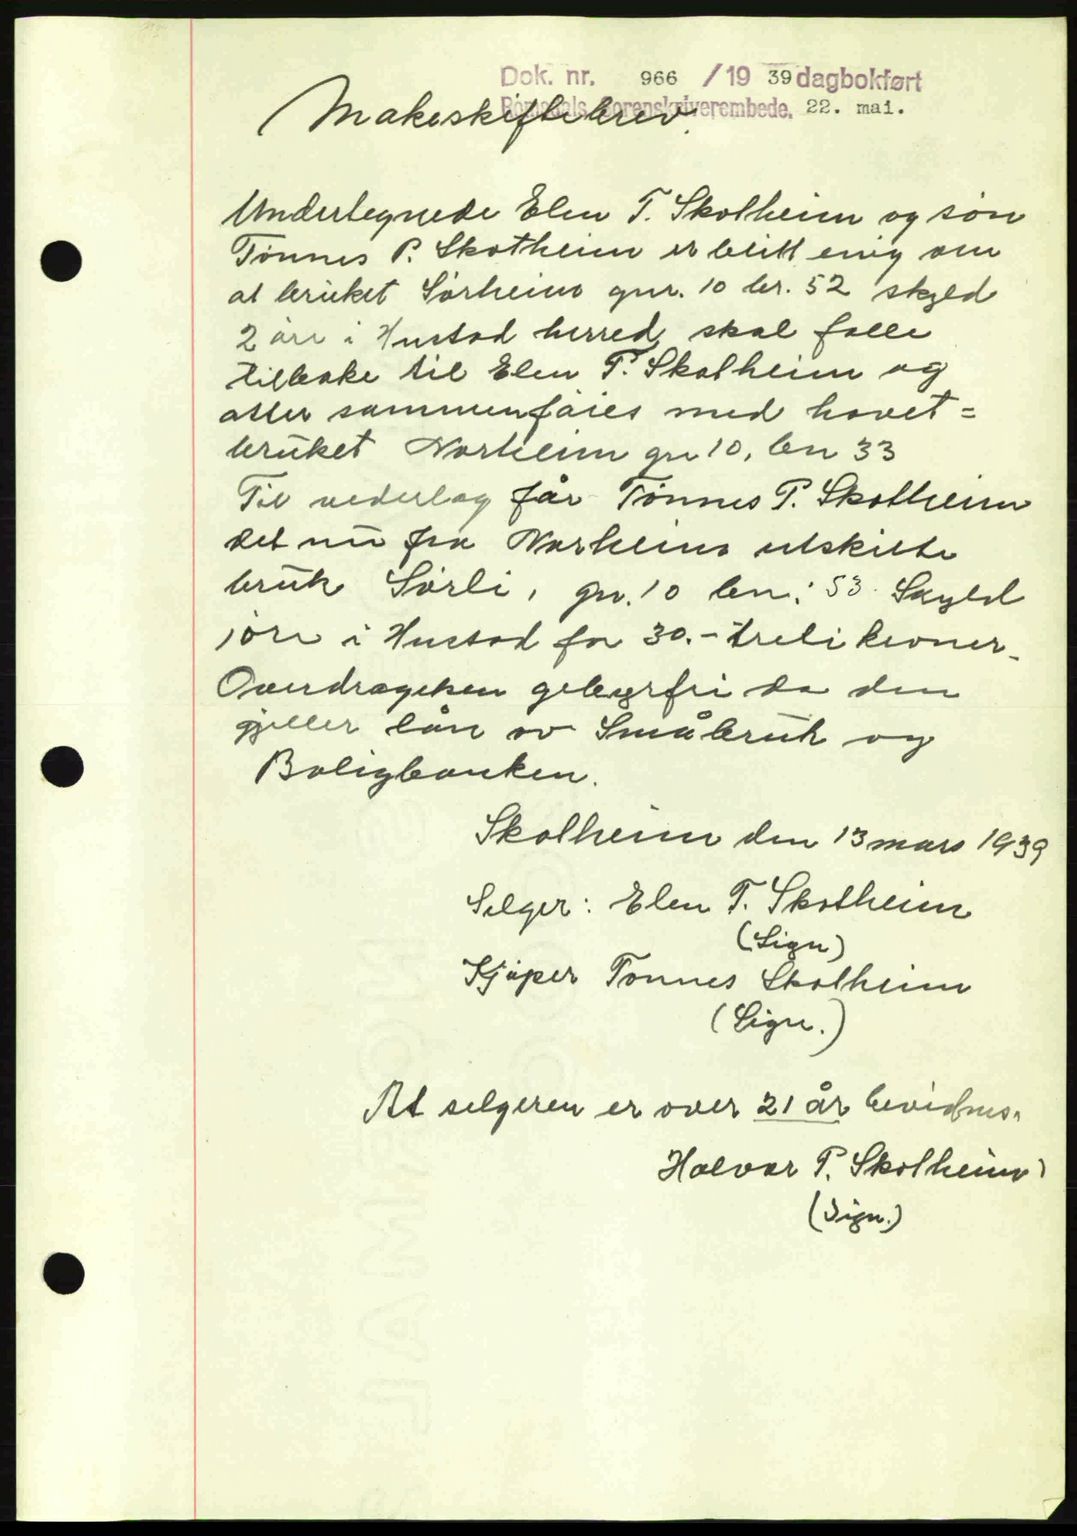 Dok. nr. 966 / 19 39 dagbokført
Romsdals Sorenskriverembede. 22. mai.
Makeskiftebrev.
Undertegnede Elen T. Skotheim og sön
Tönnes P. Skotheim er blitt enig om
at bruket Sörheim gnr. 10 br. 52 skyld
2 öre i Hustad herred skal falle
tilbake til Elen T. Skotheim og
atter sammenföies med hovet=
bruket Norheim gn 10, bn 33
Til vederlag får Tönnes P. Skotheim
det nu fra Norheim utskilte
bruk Sörli, gn. 10 bn: 53 Skyld
1 öre i Hustad for 30.- treti kroner.
Overdragelsen gebyrfri da den
gjeller lån av Småbruk og
Boligbanken.
Skotheim den 13 mars 1939
Selger: Elen T. Skotheim
(Sign)
Kjöper Tönnes Skotheim
(Sign.)
At selgeren er over 21 år bevidnes.
Halvar P. Skotheim
(Sign.)